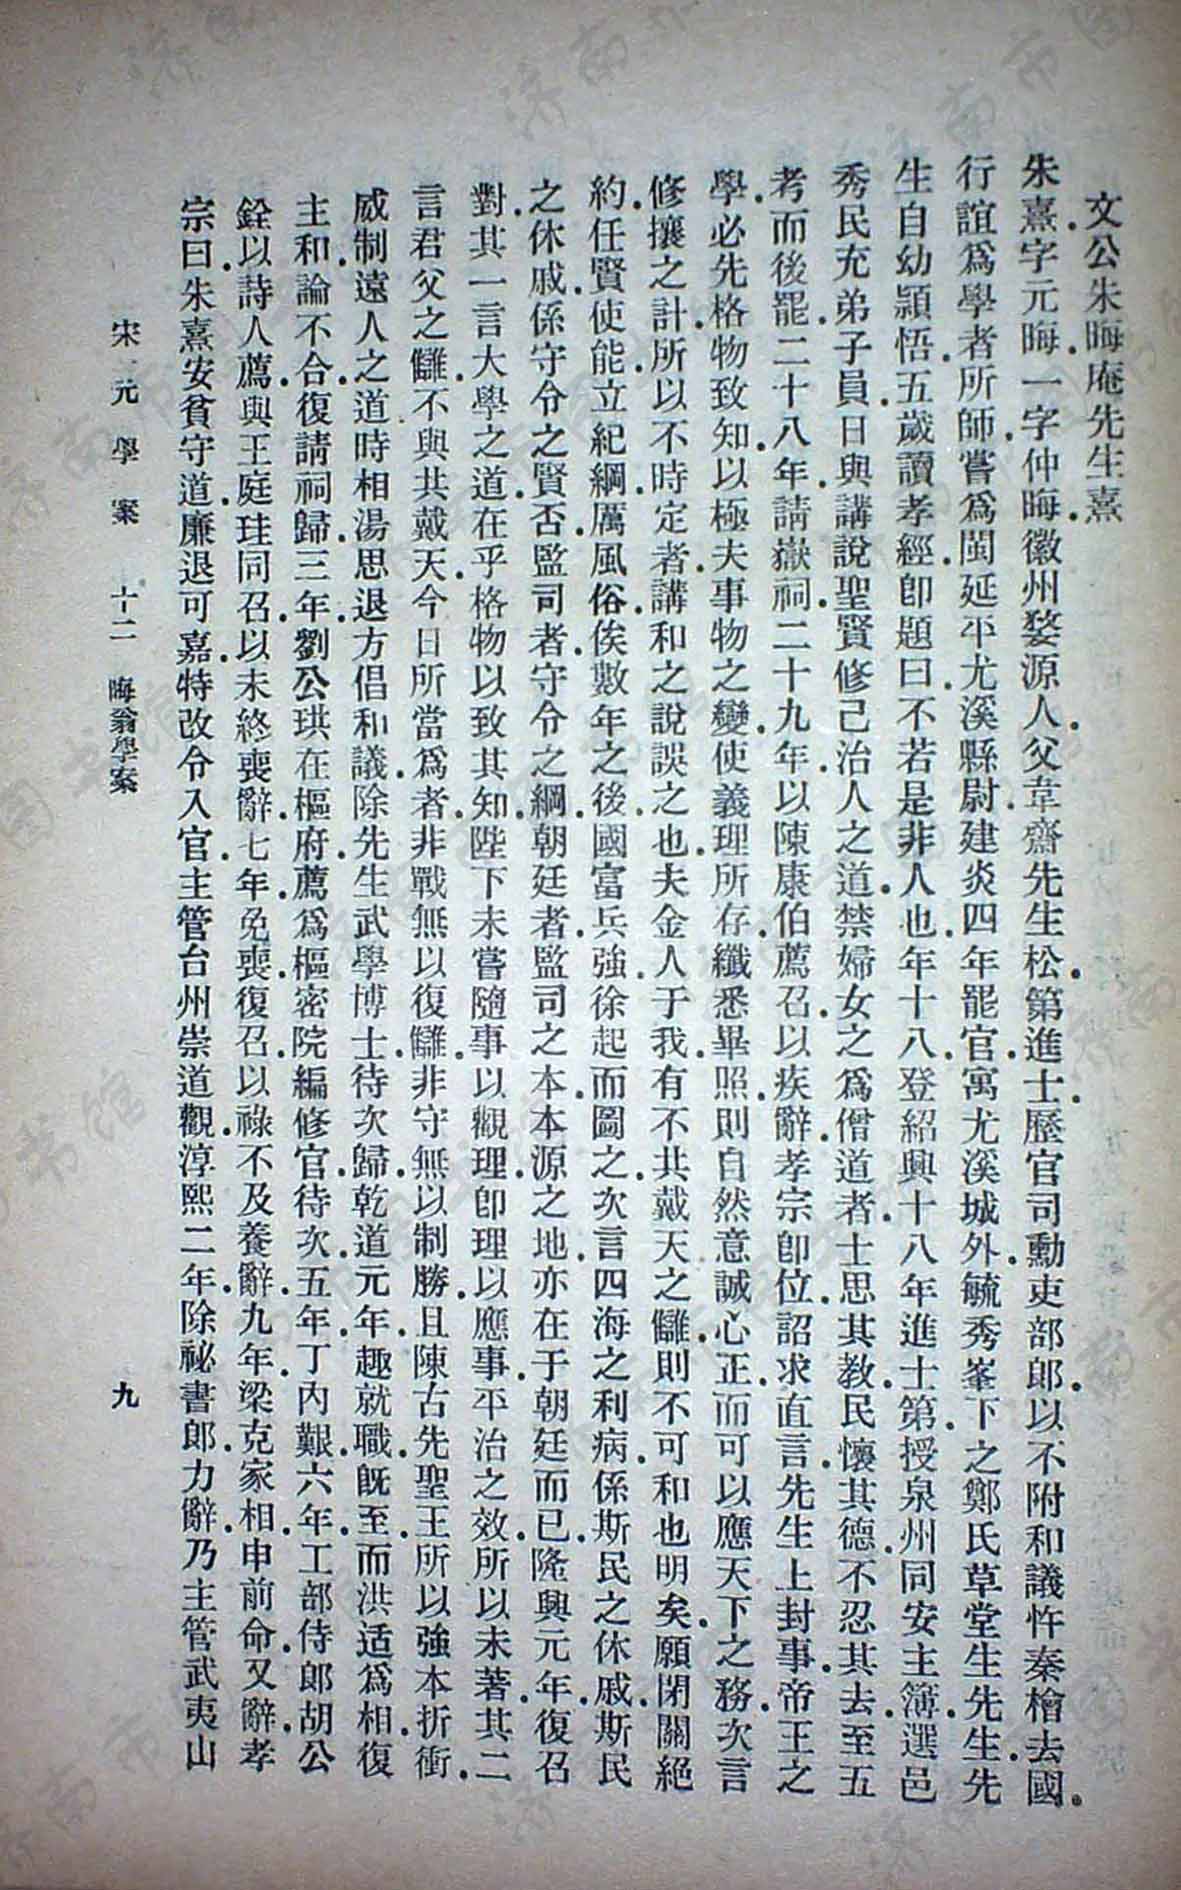 文公朱晦庵先生熹
朱熹字元晦一字仲晦徽州婺源人父韋齋先生松第進士歷官司勳吏部郎以不附和議忤秦檜去國
行誼爲學者所師嘗爲閩延平尤溪縣尉建炎四年罷官寓尤溪城外毓秀峯下之鄭氏草堂生先生先
生自幼穎悟五歲讀孝經卽題曰不若是非人也年十八登紹興十八年進士第授泉州同安主簿選邑
秀民充弟子員日與講說聖賢修己治人之道禁婦女之爲僧道者士思其教民懷其德不忍其去至五
考而後罷二十八年請嶽祠二十九年以陳康伯薦召以疾辭孝宗卽位詔求直言先生上封事帝王之
學必先格物致知以極夫事物之變使義理所存纖悉畢照則自然意誠心正而可以應天下之務次言
修攘之計所以不時定者講和之說誤之也夫金人于我有不共戴天之讎則不可和也明矣願閉關絕
約任賢使能立紀綱厲風俗俟數年之後國富兵強徐起而圖之次言四海之利病係斯民之休戚斯民
之休戚係守令之賢否監司者守令之綱朝廷者監司之本本源之地亦在于朝廷而已隆興元年復召
對其一言大學之道在乎格物以致其知陛下未嘗隨事以觀理卽理以應事平治之效所以未著其二
言君父之讎不與共戴天今日所當爲者非戰無以復讎非守無以制勝且陳古先聖王所以強本折衝
威制遠人之道時相湯思退方倡和議除先生武學博士待次歸乾道元年趣就職旣至而洪适爲相復
主和論不合復請祠歸三年劉公珙在樞府薦爲樞密院編修官待次五年丁內艱六年工部侍郎胡公
銓以詩人薦與王庭珪同召以未終喪辭七年免喪復召以祿不及養辭九年梁克家相申前命又辭孝
宗曰朱熹安貧守道廉退可嘉特改令入官主管台州崇道觀淳熙二年除祕書郎力辭乃主管武夷山
宋元學案 十二 晦翁學案 九